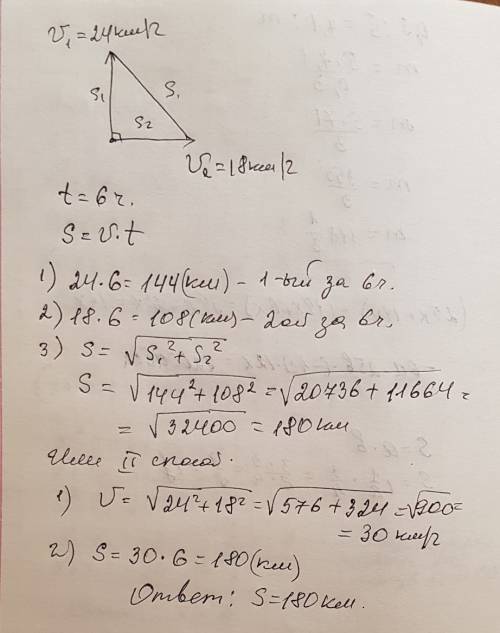 V₁ = 24 км/ч
S₁ S₁
S₂
V₂ = 18 км/ч
t = 6 ч.
S = V · t
1) 24 · 6 = 144 (км) – 1-ый за 6 ч.
2) 18 · 6 = 108 (км) – 2ой за 6 ч.
3) S = √(S₁² + S₂²)
S = √(144² + 108²) = √(20736 + 11664) =
= √32400 = 180 км
Или II способ.
1) V = √(24² + 18²) = √(576 + 324) = √900 =
= 30 км/ч
2) S = 30 · 6 = 180 (км)
Ответ: S = 180 км.